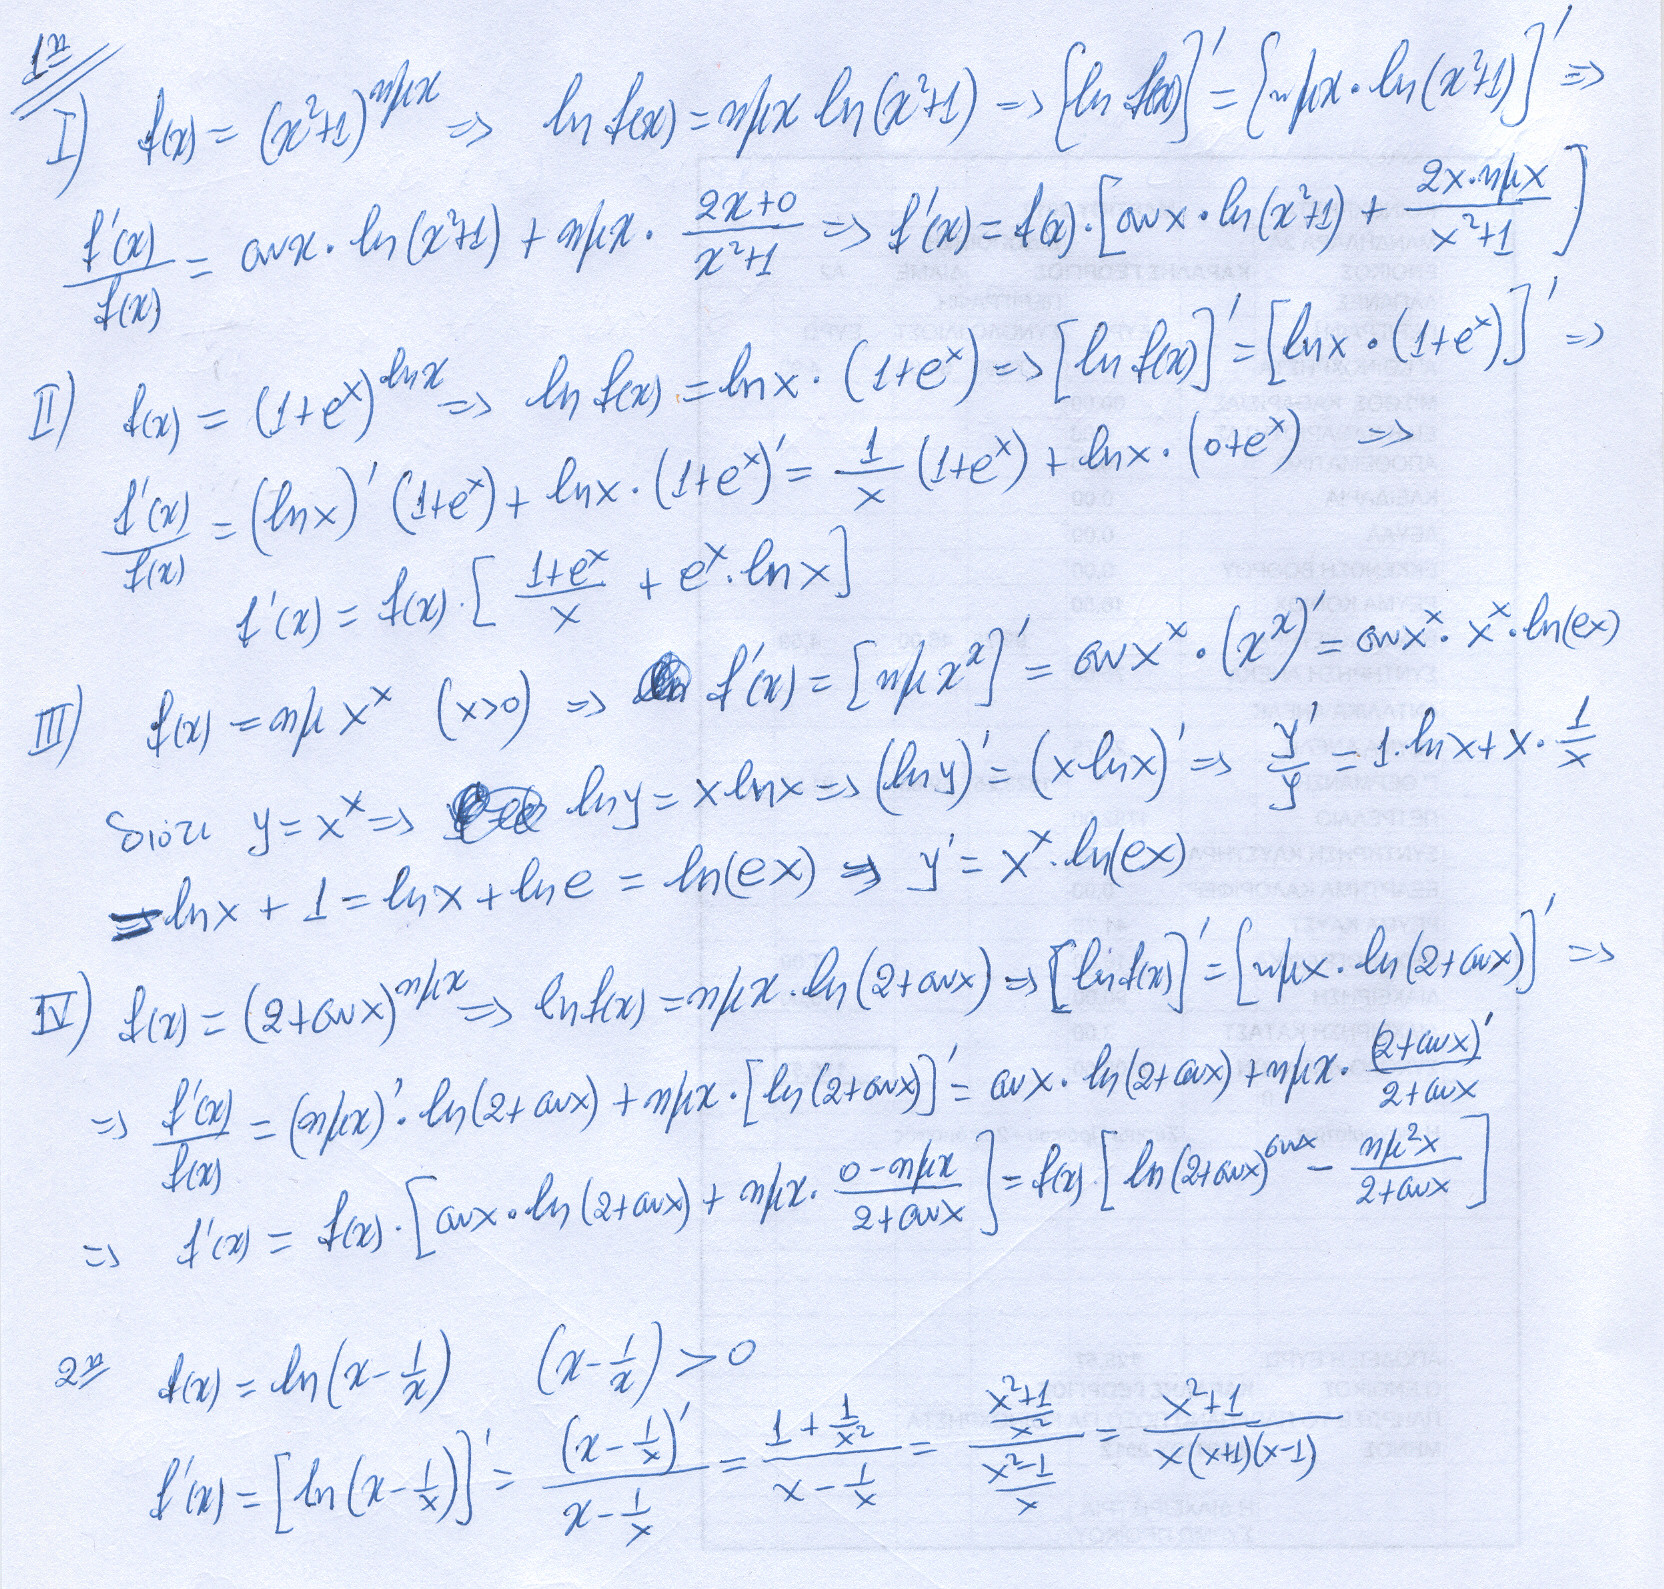 1η
I) f(x) = (x²+1)^ημx => ln f(x) = ημx ln(x²+1) => [ln f(x)]' = [ημx · ln(x²+1)]' =>
f'(x)/f(x) = συνx · ln(x²+1) + ημx · (2x+0)/(x²+1) => f'(x) = f(x) · [συνx · ln(x²+1) + (2x·ημx)/(x²+1)]
II) f(x) = (1+e^x)^lnx => ln f(x) = lnx · (1+e^x) => [ln f(x)]' = [lnx · (1+e^x)]' =>
f'(x)/f(x) = (lnx)' (1+e^x) + lnx · (1+e^x)' = 1/x (1+e^x) + lnx · (0+e^x) =>
f'(x) = f(x) · [(1+e^x)/x + e^x · lnx]
III) f(x) = ημ x^x (x>0) => f'(x) = [ημ x^x]' = συν x^x · (x^x)' = συν x^x · x^x · ln(ex)
διότι y = x^x => lny = x lnx => (lny)' = (x lnx)' => y'/y = 1·lnx + x · 1/x
= lnx + 1 = lnx + lne = ln(ex) => y' = x^x · ln(ex)
IV) f(x) = (2+συνx)^ημx => ln f(x) = ημx · ln(2+συνx) => [ln f(x)]' = [ημx · ln(2+συνx)]' =>
=> f'(x)/f(x) = (ημx)' · ln(2+συνx) + ημx · [ln(2+συνx)]' = συνx · ln(2+συνx) + ημx · (2+συνx)'/(2+συνx)
=> f'(x) = f(x) · [συνx · ln(2+συνx) + ημx · (0-ημx)/(2+συνx)] = f(x) [ln(2+συνx)^συνx - ημ²x/(2+συνx)]
2η f(x) = ln(x - 1/x) (x - 1/x) > 0
f'(x) = [ln(x - 1/x)]' = (x - 1/x)'/(x - 1/x) = (1 + 1/x²)/(x - 1/x) = ((x²+1)/x²)/((x²-1)/x) = (x²+1)/(x(x+1)(x-1))